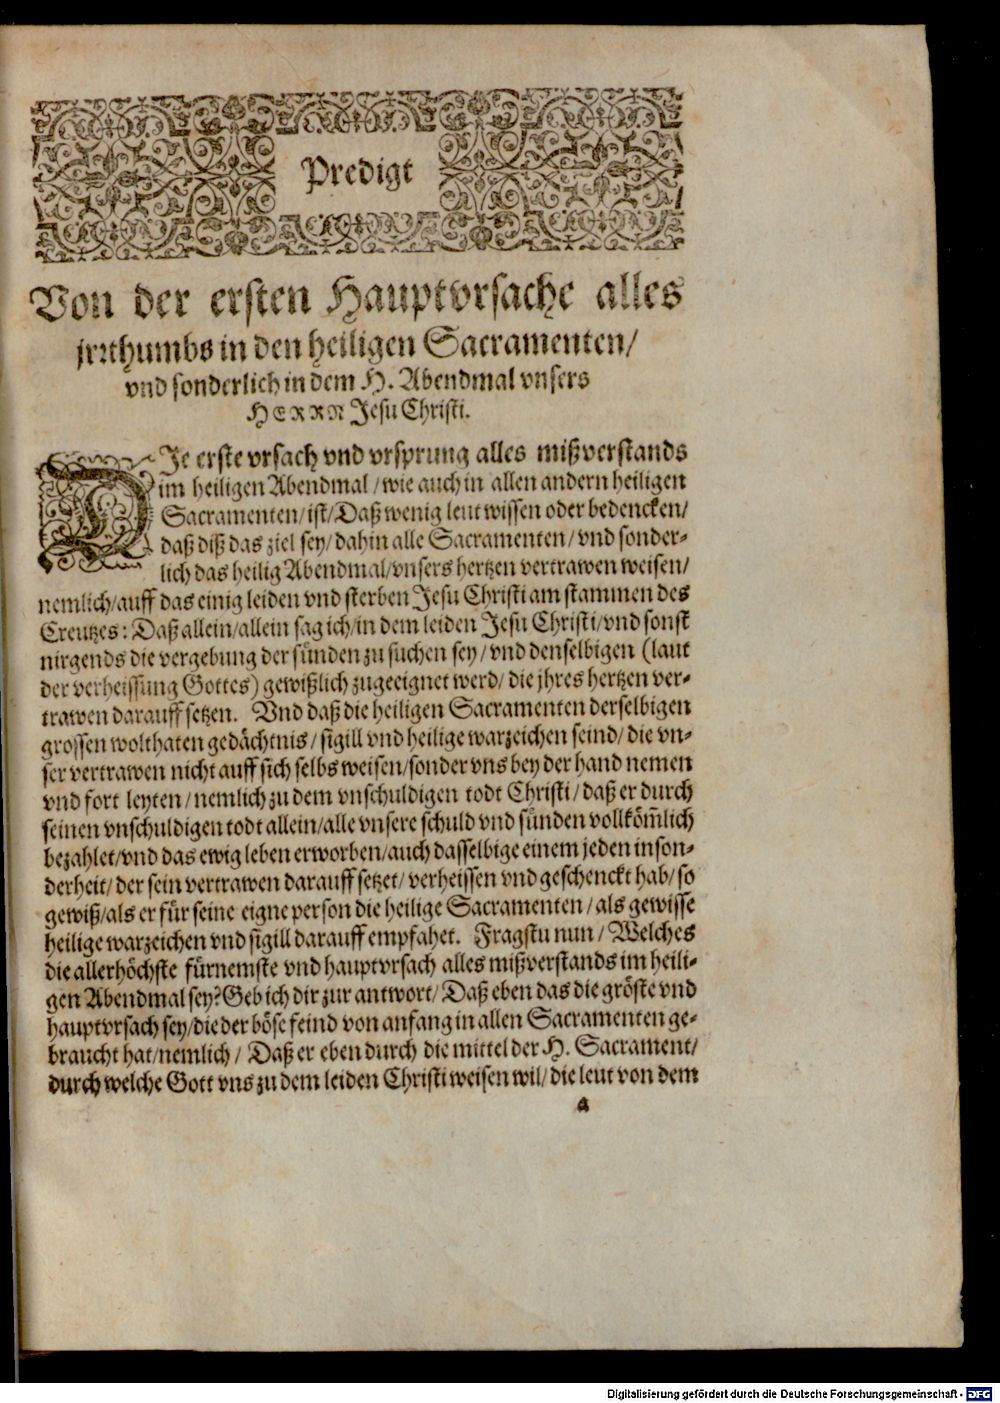 Predigt
Von der ersten Hauptvrsache alles
jrrthumbs in den heiligen Sacramenten/
vnd sonderlich in dem H. Abendmal vnsers
HERRN Jesu Christi.
DJe erste vrsach vnd vrsprung alles mißverstands
im heiligen Abendmal/wie auch in allen andern heiligen
Sacramenten/ist/Daß wenig leut wissen oder bedencken/
daß diß das ziel sey/dahin alle Sacramenten/vnd sonder-
lich das heilig Abendmal/vnsers hertzen vertrawen weisen/
nemlich/auff das einig leiden vnd sterben Jesu Christi am stammen des
Creutzes: Daß allein/allein sag ich/in dem leiden Jesu Christi/vnd sonst
nirgends die vergebung der sünden zu suchen sey/vnd denselbigen (laut
der verheissung Gottes) gewißlich zugeeignet werd/die jhres hertzen ver-
trawen darauff setzen. Vnd daß die heiligen Sacramenten derselbigen
grossen wolthaten gedächtnis/sigill vnd heilige warzeichen seind/die vn-
ser vertrawen nicht auff sich selbs weisen/sonder vns bey der hand nemen
vnd fort leyten/nemlich zu dem vnschuldigen todt Christi/daß er durch
seinen vnschuldigen todt allein/alle vnsere schuld vnd sünden vollkom̃lich
bezahlet/vnd das ewig leben erworben/auch dasselbige einem jeden inson-
derheit/der sein vertrawen darauff setzet/verheissen vnd geschenckt hab/so
gewiß/als er für seine eigne person die heilige Sacramenten/als gewisse
heilige warzeichen vnd sigill darauff empfahet. Fragstu nun/Welches
die allerhöchste fürnemste vnd hauptvrsach alles mißverstands im heili-
gen Abendmal sey? Geb ich dir zur antwort/Daß eben das die gröste vnd
hauptvrsach sey/die der böse feind von anfang in allen Sacramenten ge-
braucht hat/nemlich/Daß er eben durch die mittel der H. Sacrament/
durch welche Gott vns zu dem leiden Christi weisen wil/die leut von dem
a
Digitalisierung gefördert durch die Deutsche Forschungsgemeinschaft - DFG